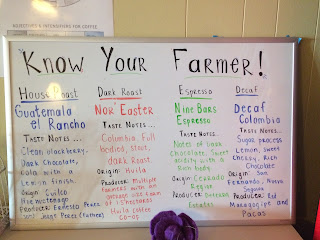 OBJECTIVES & DESCRIPTORS FOR COFFEE
KNOW YOUR FARMER!
House Roast
Guatemala
el Rancho
TASTE NOTES...
Clean blackberry,
Dark Chocolate,
cola with a
Lemon finish.
ORIGIN:
Huehuetenango
PRODUCER: Ernesto Perez
and Jorge Perez (Father)
Dark Roast
Nor'Easter
TASTE NOTES...
Columbia Full
bodied, Stout,
dark Roast.
ORIGIN: Huila
PRODUCER: Multiple
farmers with an
average size farm
of 1.5 hectares
Huila coffee
co-op
Espresso
Nine Bars
Espresso
TASTE NOTES...
Notes of
Chocolate. Sweet
acidity with a
Rich body
ORIGIN: Cerrado
Region
PRODUCER:
Decaf
Decaf
Colombia
TASTE NOTES...
Sugar process
Lemon, sweet
cherry, Rich
Chocolate
ORIGIN: San
Fernando, Nueva
Segovia
PRODUCER: Red
and
Pacas